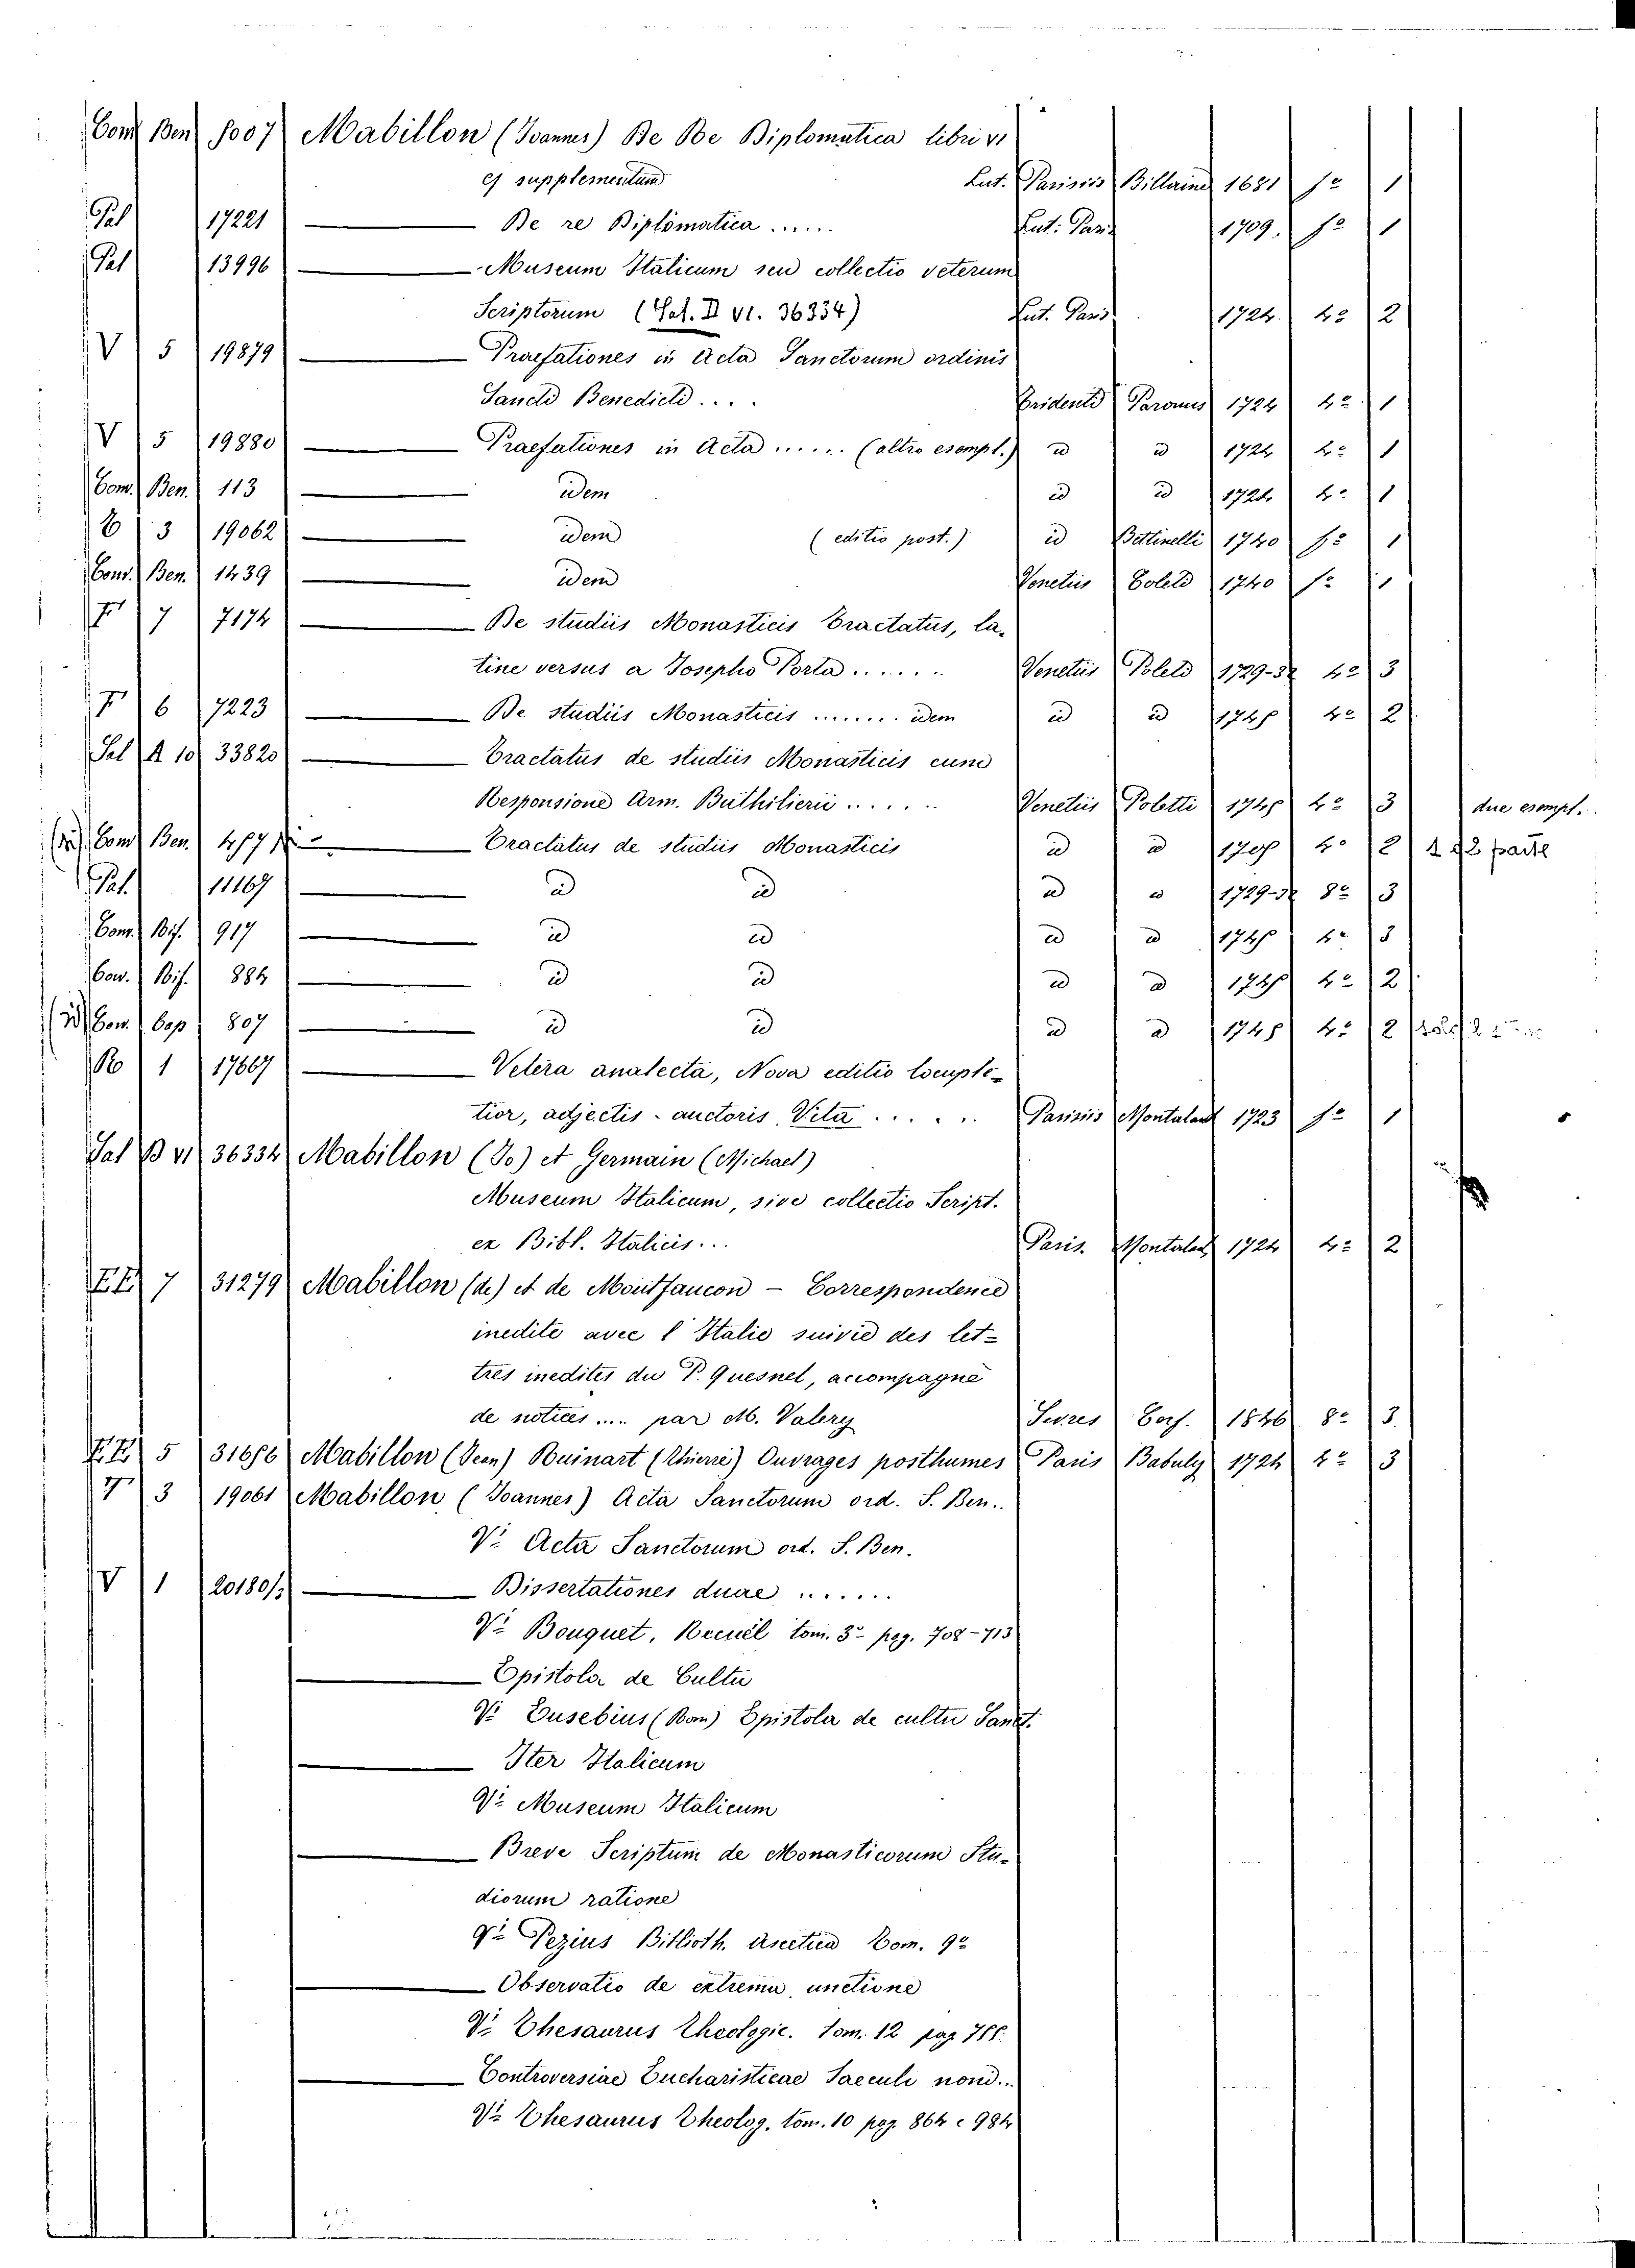 Conv. Ben. 1007 Mabillon (Joannes) De Re Diplomatica libri VI
et supplementum Lut. Parisiis Billaine 1681 fo 1
Pal 17221 De re Diplomatica ...... Lut. Paris 1709. fo 1
Pal 13996 Museum Italicum seu collectio veterum
Scriptorum (Sal. B VI. 36334) Lut. Paris 1724. 4o 2
V 5 19879 Praefationes in Acta Sanctorum ordinis
Sancti Benedicti .... Tridenti Paronus 1724 4o 1
V 5 19880 Praefationes in Acta ...... (altro esempt.) id id 1724 4o 1
Conv. Ben. 113 idem id id 1724 4o 1
3 19062 idem (editio post.) id Bettinelli 1740 fo 1
Conv. Ben. 1439 idem Venetiis Coleti 1740 fo 1
7 7174 De studiis Monasticis Tractatus, la-
tine versus a Josepho Porta ...... Venetiis Poleti 1729-32 4o 3
6 7223 De studiis Monasticis ....... idem id id 1745 4o 2
Sal A 10 33820 Tractatus de studiis Monasticis cum
Responsione Arm. Buthilierii ...... Venetiis Poletti 1745 4o 3 due esempt.
Conv. Ben. Tractatus de studiis Monasticis id id 4o 2 parte
Pal. 11167 id id id id 1729-32 8o 3
Conv. Rif. 917 id id id id 1745 4o 3
Conv. Rif. 884 id id id id 1745 4o 2
Conv. Cap 807 id id id id 1745 4o 2
R 1 17667 Vetera analecta, Nova editio locuple-
tior, adjectis - auctoris Vita ...... Parisiis Montalant 1723 fo 1
Sal B VI 36334 Mabillon (Jo) et Germain (Michael)
Museum Italicum, sive collectio Script.
ex Bibl. Italicis... Paris. Montalant 1724 4o 2
7 31279 Mabillon (de) et de Montfaucon - Correspondence
inedite avec l'Italie suivie des let-
tres inedites du P. Quesnel, accompagnè
de notices .... par M. Valery 1846 8o 3
5 31656 Mabillon (Jean) Ruinart (Thierri) Ouvrages posthumes Paris Babuty 1724 4o 3
3 19061 Mabillon (Joannes) Acta Sanctorum ord. S. Ben..
Vi Acta Sanctorum ord. S. Ben.
V 1 20180/3 Dissertationes duae ......
Vi Bouquet, Recueil tom. 3o pag. 708-713
Epistola de Cultu
Vi Eusebius (Rom) Epistola de cultu Sanct.
Iter Italicum
Vi Museum Italicum
Breve Scriptum de Monasticorum Stu-
diorum ratione
Vi Pezius Biblioth. Ascetica Tom. 9o
Observatio de extrema unctione
Vi Thesaurus Theologic. Tom. 12 pag 755.
Controversiae Eucharisticae Saeculi noni..
Vi Thesaurus Theolog. tom. 10 pag. 864 e 984